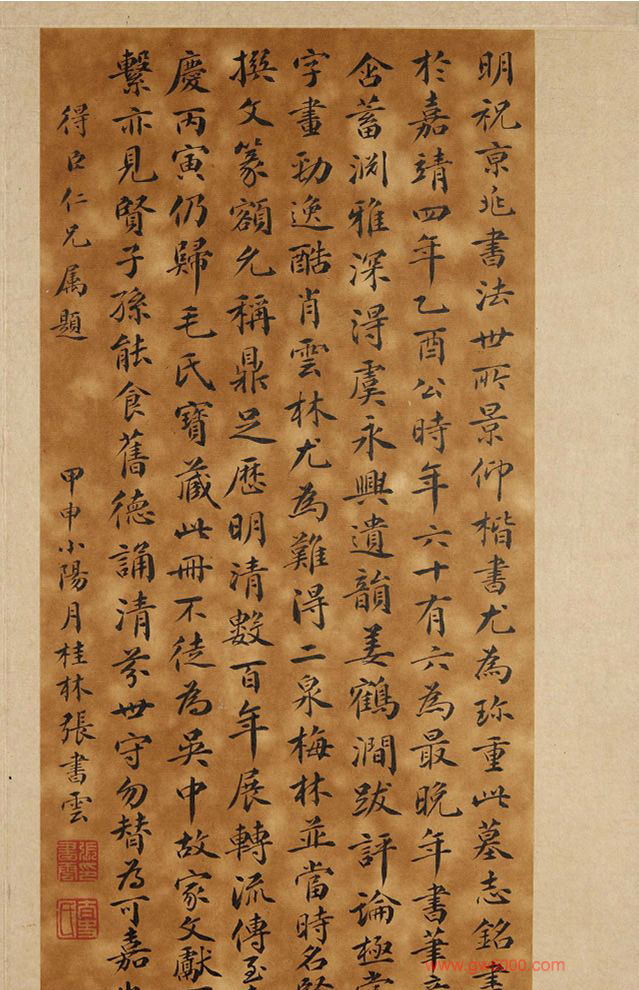 明祝京兆書法世所景仰楷書尤為珍重此墓志銘書
於嘉靖四年乙酉公時年六十有六為最晚年書筆意
含蓄渊雅深得虞永興遺韻姜鶴澗跋評論極當
字畫勁逸酷肖雲林尤為難得二泉梅林並當時名賢
撰文篆額允稱鼎足歷明清數百年展轉流傳至
慶丙寅仍歸毛氏寶藏此冊不徒為吳中故家文獻
繫亦見賢子孫能食舊德誦清芬世守勿替為可嘉
得臣仁兄属題
甲申小陽月桂林張書雲
www.gwa1000.com